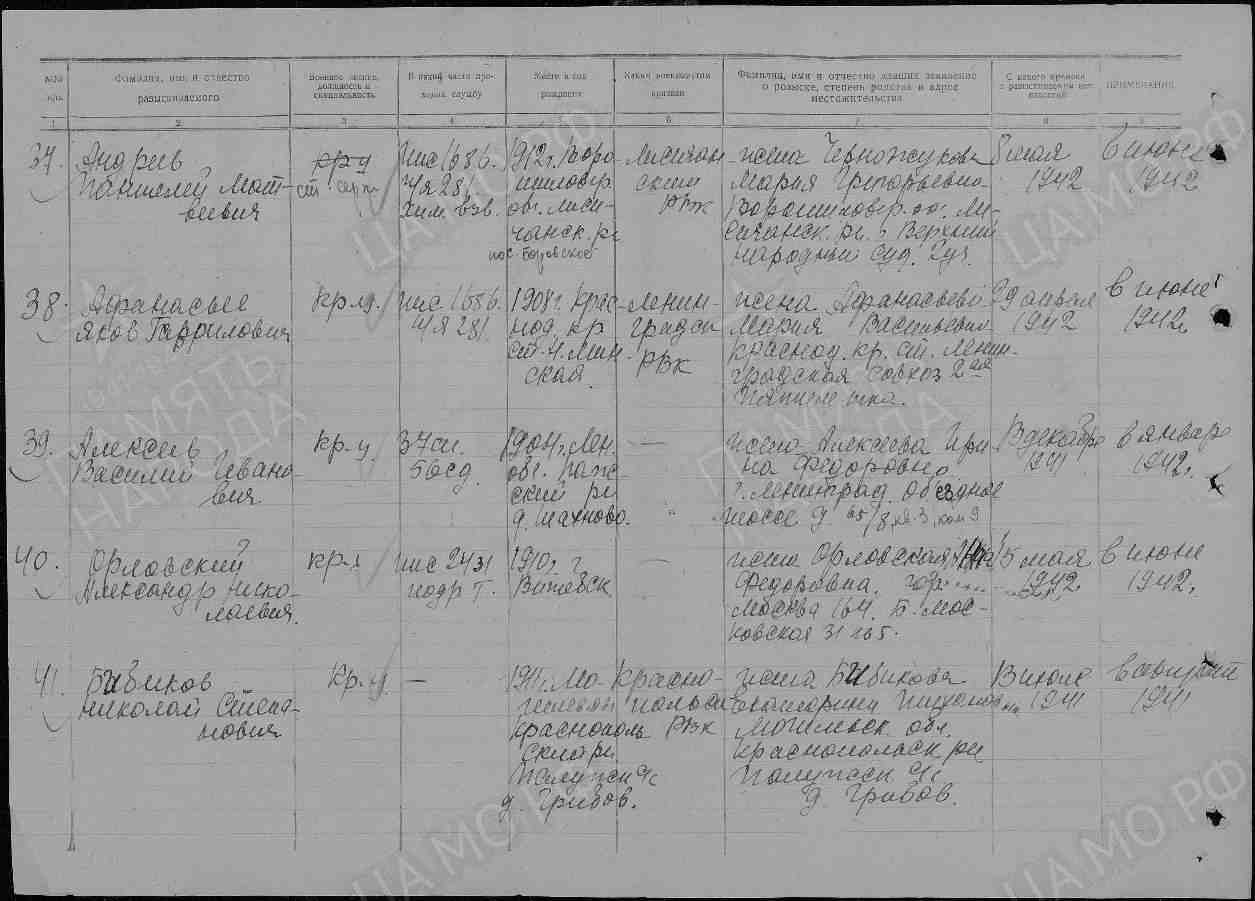 №№ п/п.
Фамилия, имя и отчество разыскиваемого
Военное звание, должность и специальность
В какой части проходил службу
Место и год рождения
Каким военкоматом призван
Фамилия, имя и отчество давших заявление о розыске, степень родства и адрес местожительства
С какого времени
ПРИМЕЧАНИЕ
1 2 3 4 5 6 7 8 9
37.
Андрив
Пантелей Мат-
веевич
кр-ц
ст. серж.
ппс 1686.
п/я 281.
хим. взв.
1912 г. Воро-
шиловгр.
обл. Лиси-
чанск. рн
пос. Боровское
Лисичан-
ский
РВК
жена Черножукова
Мария Григорьевна
Ворошиловгр. об. Ли-
сичанск. рн. с Верхний
народный суд. 2 уч.
8 мая
1942
в июне
1942
38.
Афанасьев
Яков Гаврилович
кр-ц.
ппс 1686.
п/я 281.
1908 г. Крас-
нод. кр
ст. Н. Мин-
ская.
Ленин-
градск
РВК
жена Афанасьева
Мария Васильевна
Краснод. кр. ст. Ленин-
градская совхоз 2ая
Пятилетка.
29 апреля
1942
в июне
1942.
39.
Алексеев
Василий Ивано-
вич
кр-ц
37 сп.
56 сд.
1904 г. Лен.
обл. Паж-
ский рн
д. Шахново.
—
"
жена Алексеева Ири-
на Федоровна
г. Ленинград. Объездное
шоссе д. 65/8, кв. 3, ком 9
13 декабря
1941
в январе
1942.
40.
Орловский
Александр Нико-
лаевич.
кр-ц
ппс 2431
подр Т.
1910 г. г
Витебск
—
жена Орловская
Федоровна. гор.
Москва 164. Б. Мос-
ковская 31 кв 5.
5 мая
1942
в июне
1942.
41.
Бибиков
Николай Степа-
нович
кр-ц
—
1911 г. Мо-
гилевск
Краснополь
ский рн
Палужск с/с
д. Грибов.
Красно-
польск
РВК
жена Бибикова
Екатерина
Могильевск. обл.
Краснопольск рн
Палужск с/с
д. Грибов.
В июле
1941
1941
ПАМЯТЬ НАРОДА
ЦА МО РФ